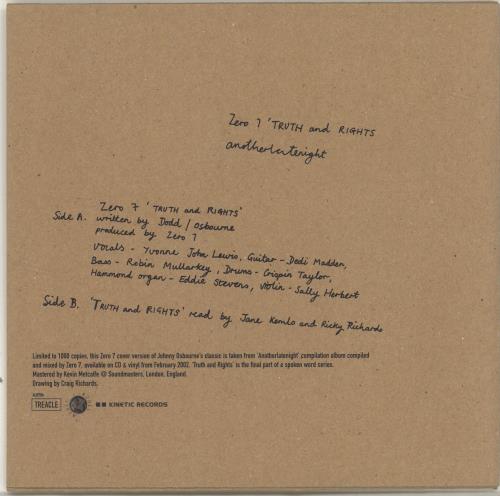 Zero 7 'TRUTH and RIGHTS
anotherlatenight
Zero 7 'TRUTH and RIGHTS'
Side A. written by Dodd / Osbourne
produced by Zero 7
Vocals - Yvonne John Lewis, Guitar - Dedi Madden,
Bass - Robin Mullarkey, Drums - Crispin Taylor,
Hammond organ - Eddie Stevens, Violin - Sally Herbert
Side B. 'TRUTH and RIGHTS' read by Jane Kemlo and Ricky Richards
Limited to 1000 copies, this Zero 7 cover version of Johnny Osbourne's classic is taken from 'Anotherlatenight' compilation album compiled
and mixed by Zero 7, available on CD & vinyl from February 2002. 'Truth and Rights' is the final part of a spoken word series.
Mastered by Kevin Metcalfe @ Soundmasters, London, England.
Drawing by Craig Richards.
TREACLE KINETIC RECORDS